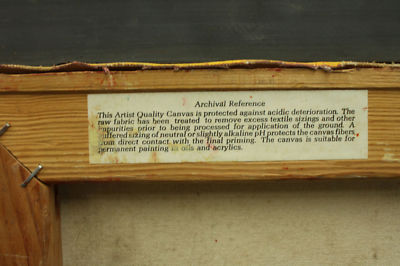 Archival Reference
This Artist Quality Canvas is protected against acidic deterioration. The
raw fabric has been treated to remove excess textile sizings and other
impurities prior to being processed for application of the ground. A
buffered sizing of neutral or slightly alkaline pH protects the canvas fibers
from direct contact with the final priming. The canvas is suitable for
permanent painting in oils and acrylics.